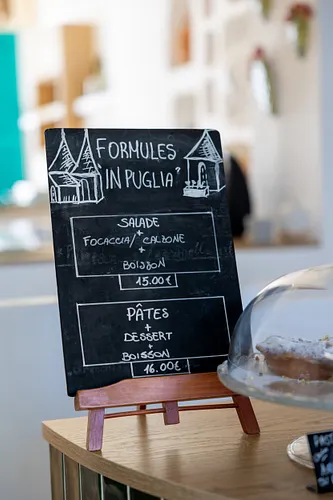 FORMULES
"IN PUGLIA"
SALADE
+
FOCACCIA/ CALZONE
+
BOISSON
15.00€
PÂTES
+
DESSERT
+
BOISSON
16.00€